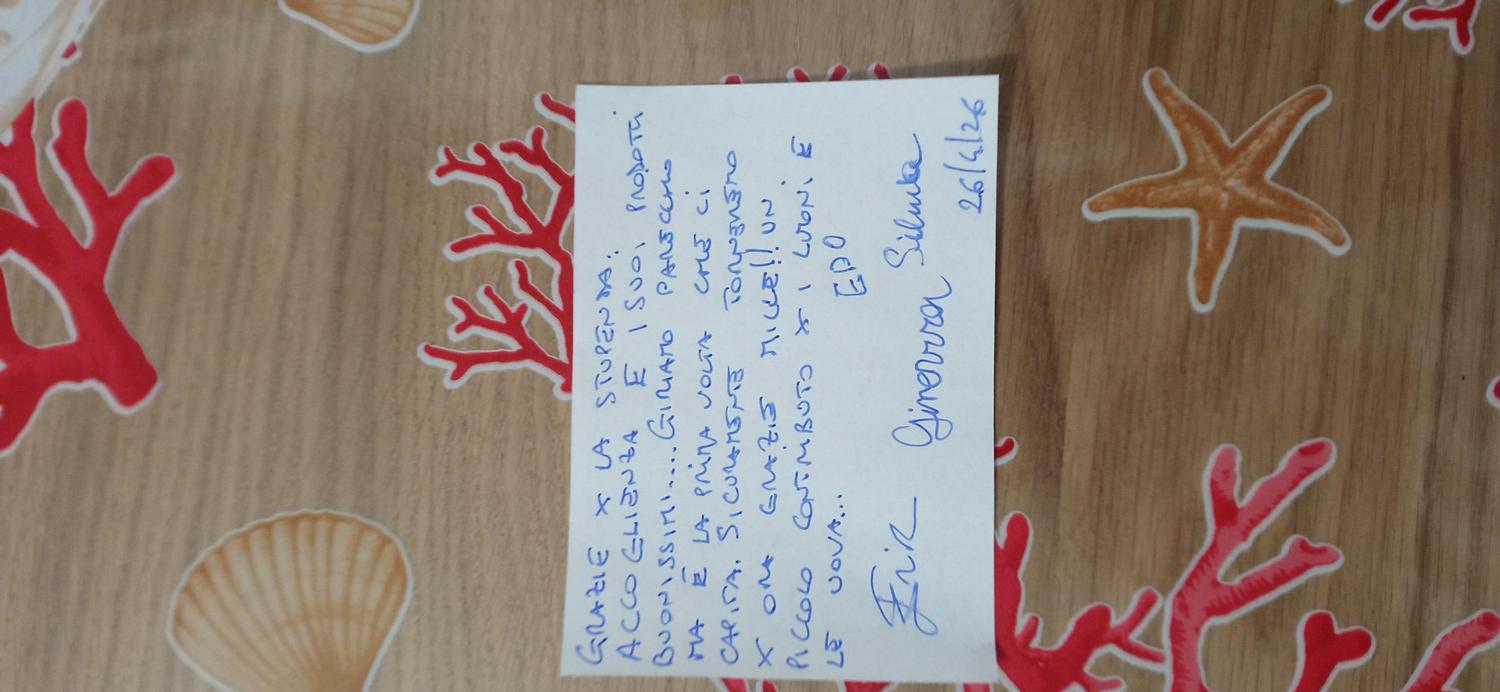 GRAZIE X LA STUPENDA.
ACCOGLIENZA E I SUOI PRODOTTI
BUONISSIMI.... GIRIAMO PARECCHIO
MA È LA PRIMA VOLTA CHE CI
CAPITA. SICURAMENTE TORNEREMO
X ORA GRAZIE MILLE!! UN
PICCOLO CONTRIBUTO X I LIMONI E
LE UOVA...
EDO
Eric Ginevra Silvia
26/4/26